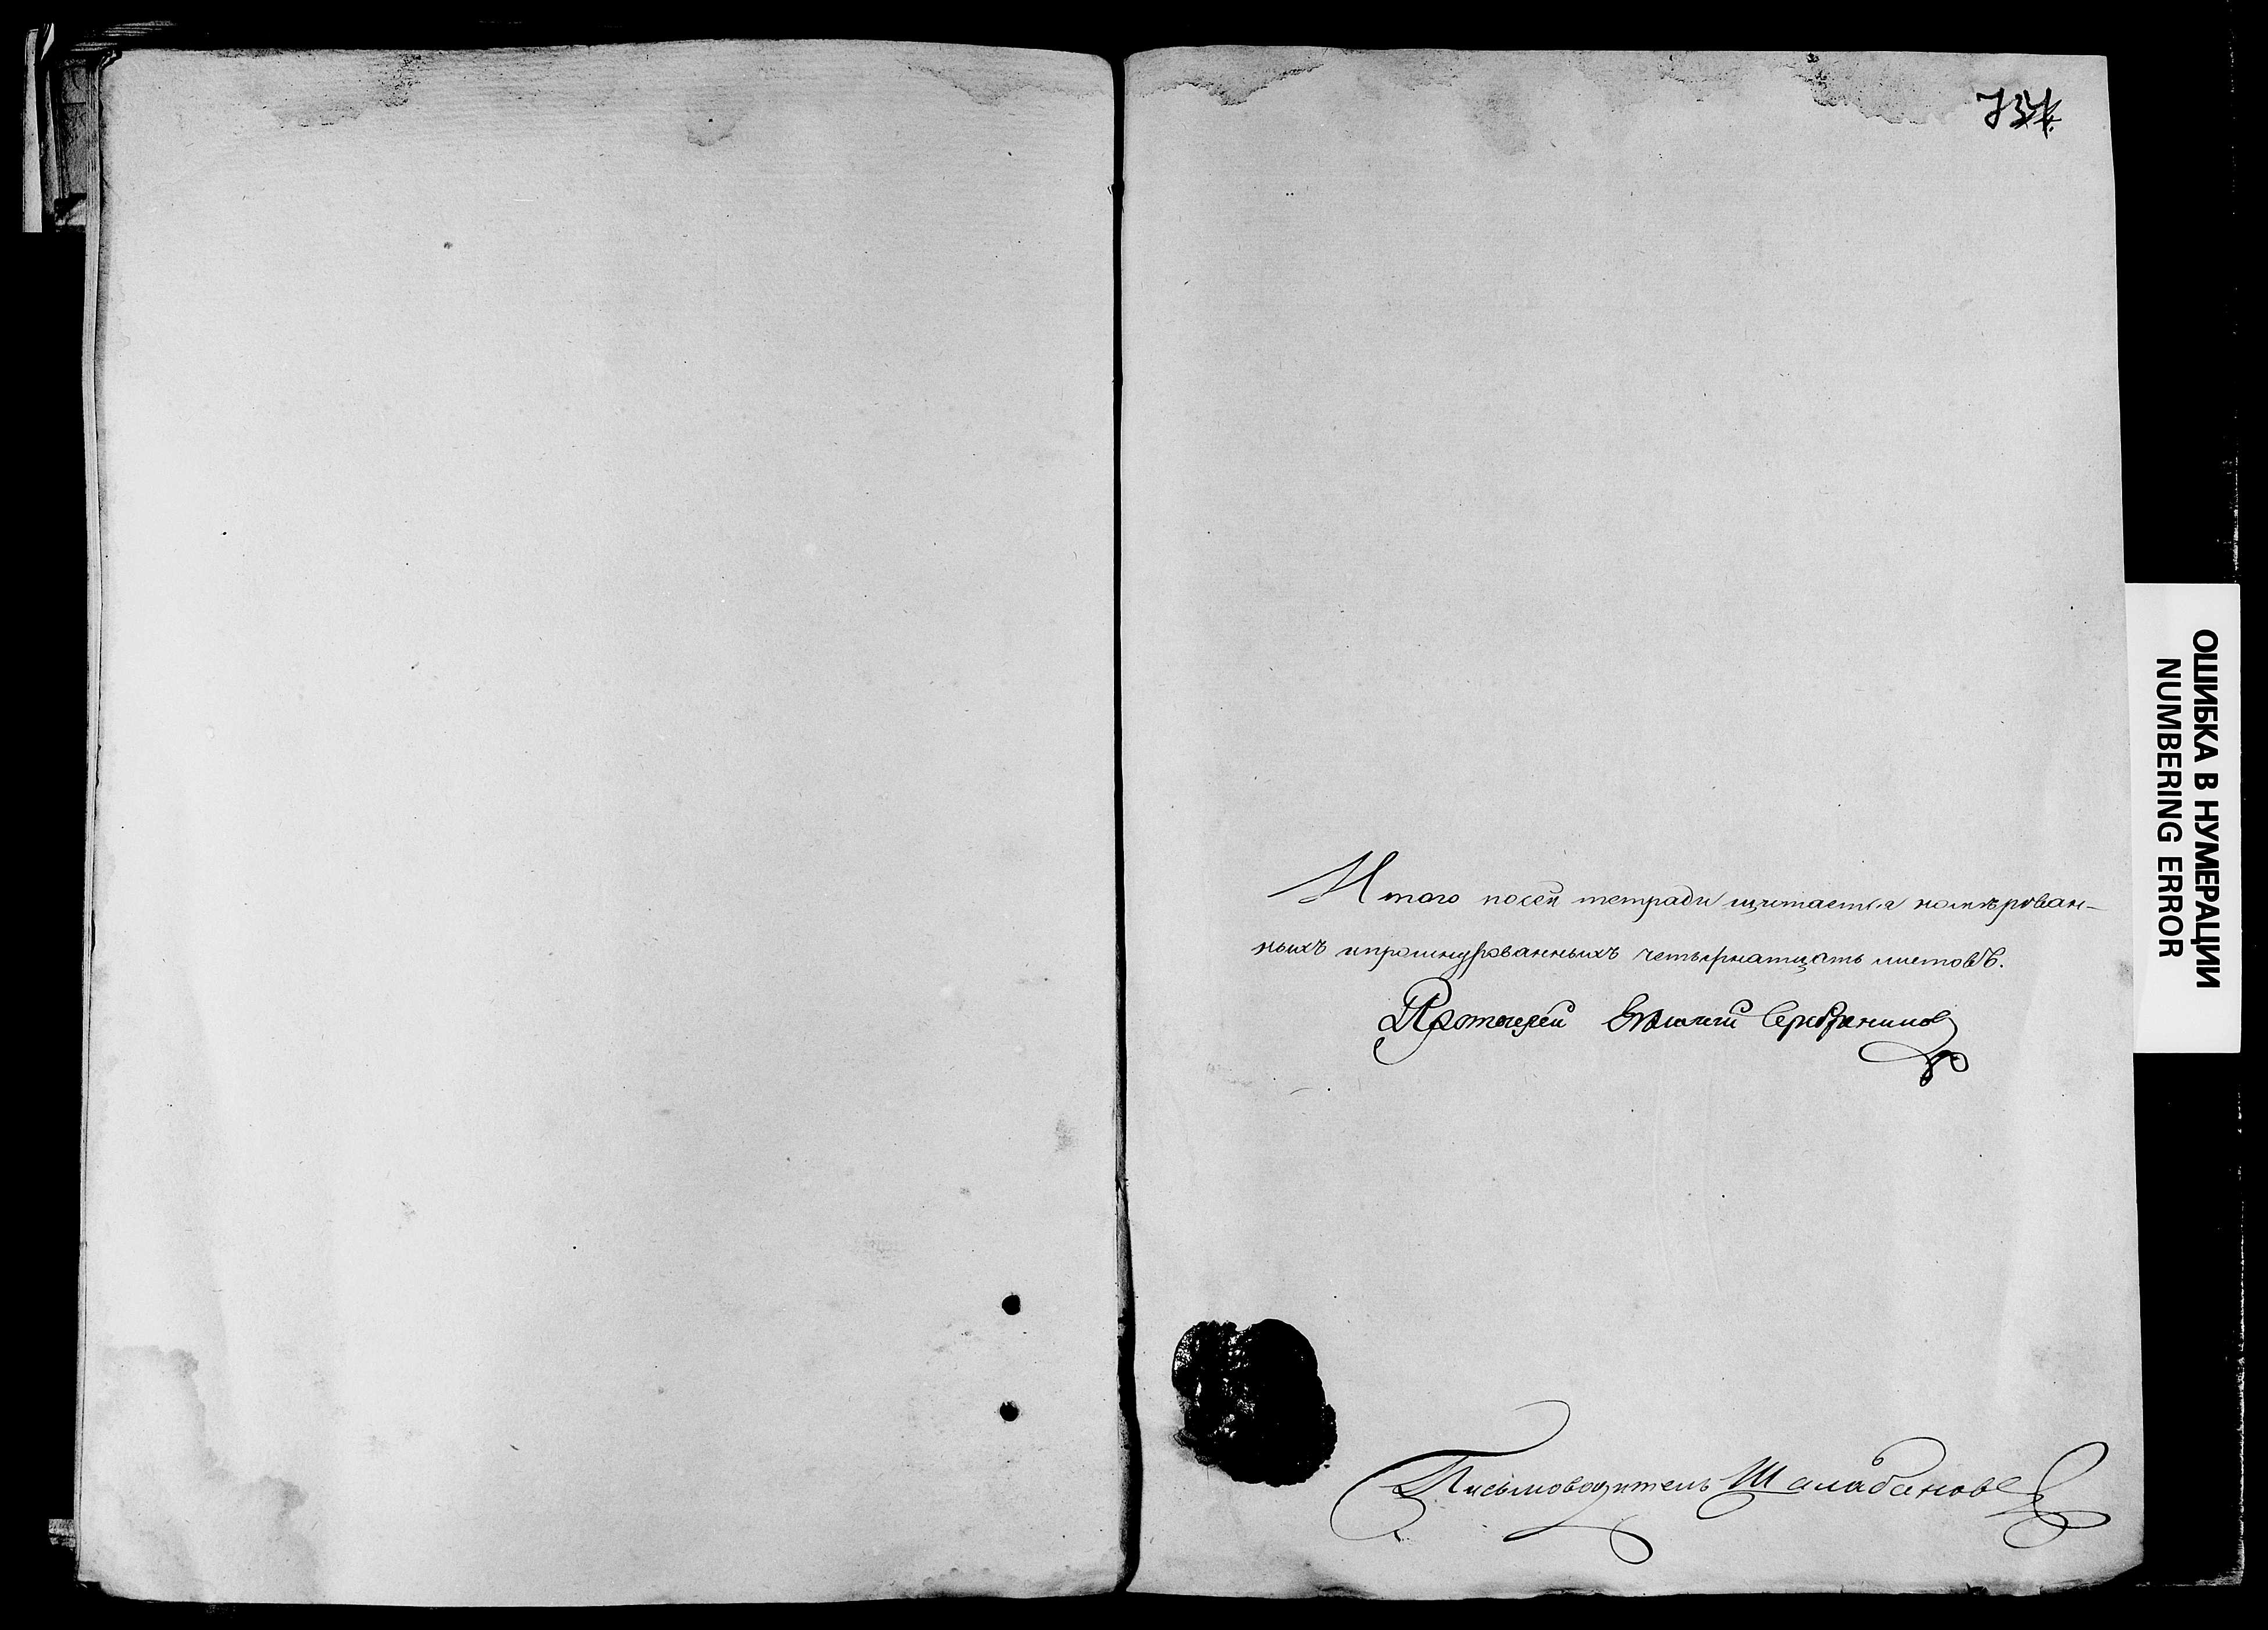 Итого посей тетради щитается номерован-
ныхъ ипрошнурованныхъ четырнатцать листовъ.
Протоиерей Евгений Серебрениковъ
Письмоводитель Шалабановъ
ОШИБКА В НУМЕРАЦИИ
NUMBERING ERROR